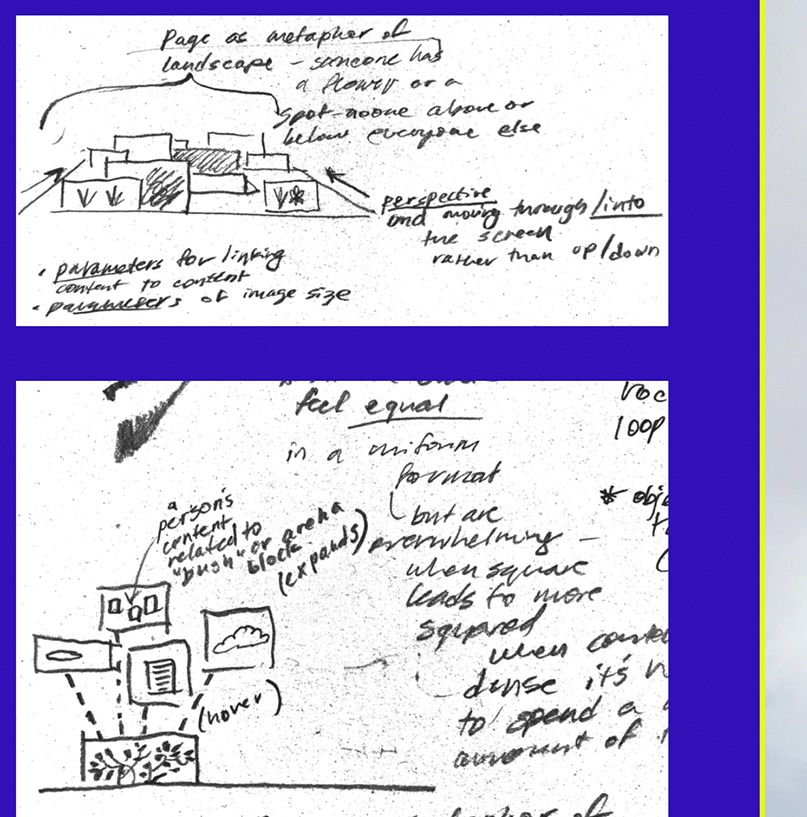 Page as metaphor of
landscape – someone has
a flower or a
spot - noone above or
below everyone else
perspective
and moving through/into
the screen
rather than up/down
• parameters for linking
content to content
• parameters of image size
feel equal
in a uniform
format
but are
overwhelming –
when square
leads to more
squared
when
dense it's
to spend a
amount of
loop
a
person's
content
related to
"bush" or arena
block
(expands)
(hover)